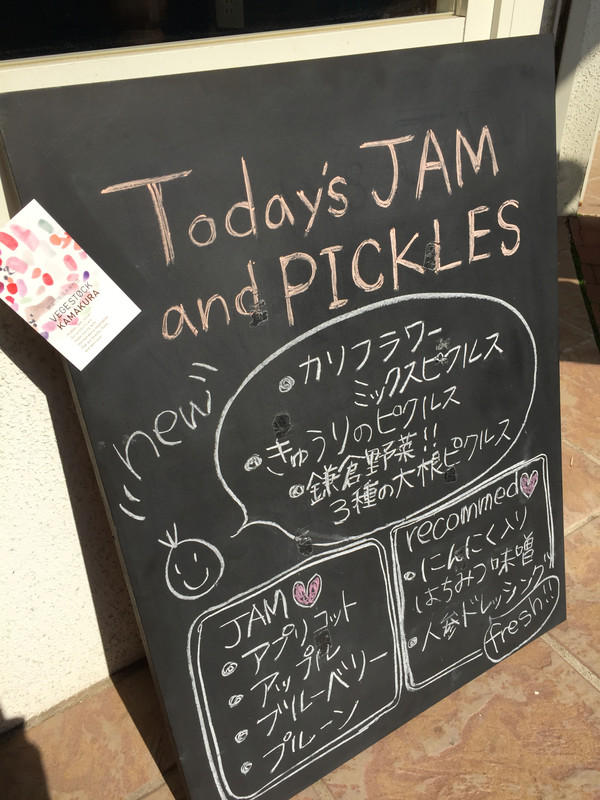 Today's JAM
and PICKLES
VEGESTOCK
KAMAKURA
new
カリフラワー
ミックスピクルス
きゅうりのピクルス
鎌倉野菜!!
3種の大根ピクルス
JAM
アプリコット
アップル
ブルーベリー
プルーン
recommed
にんにく入り
はちみつ味噌
人参ドレッシング
fresh!!